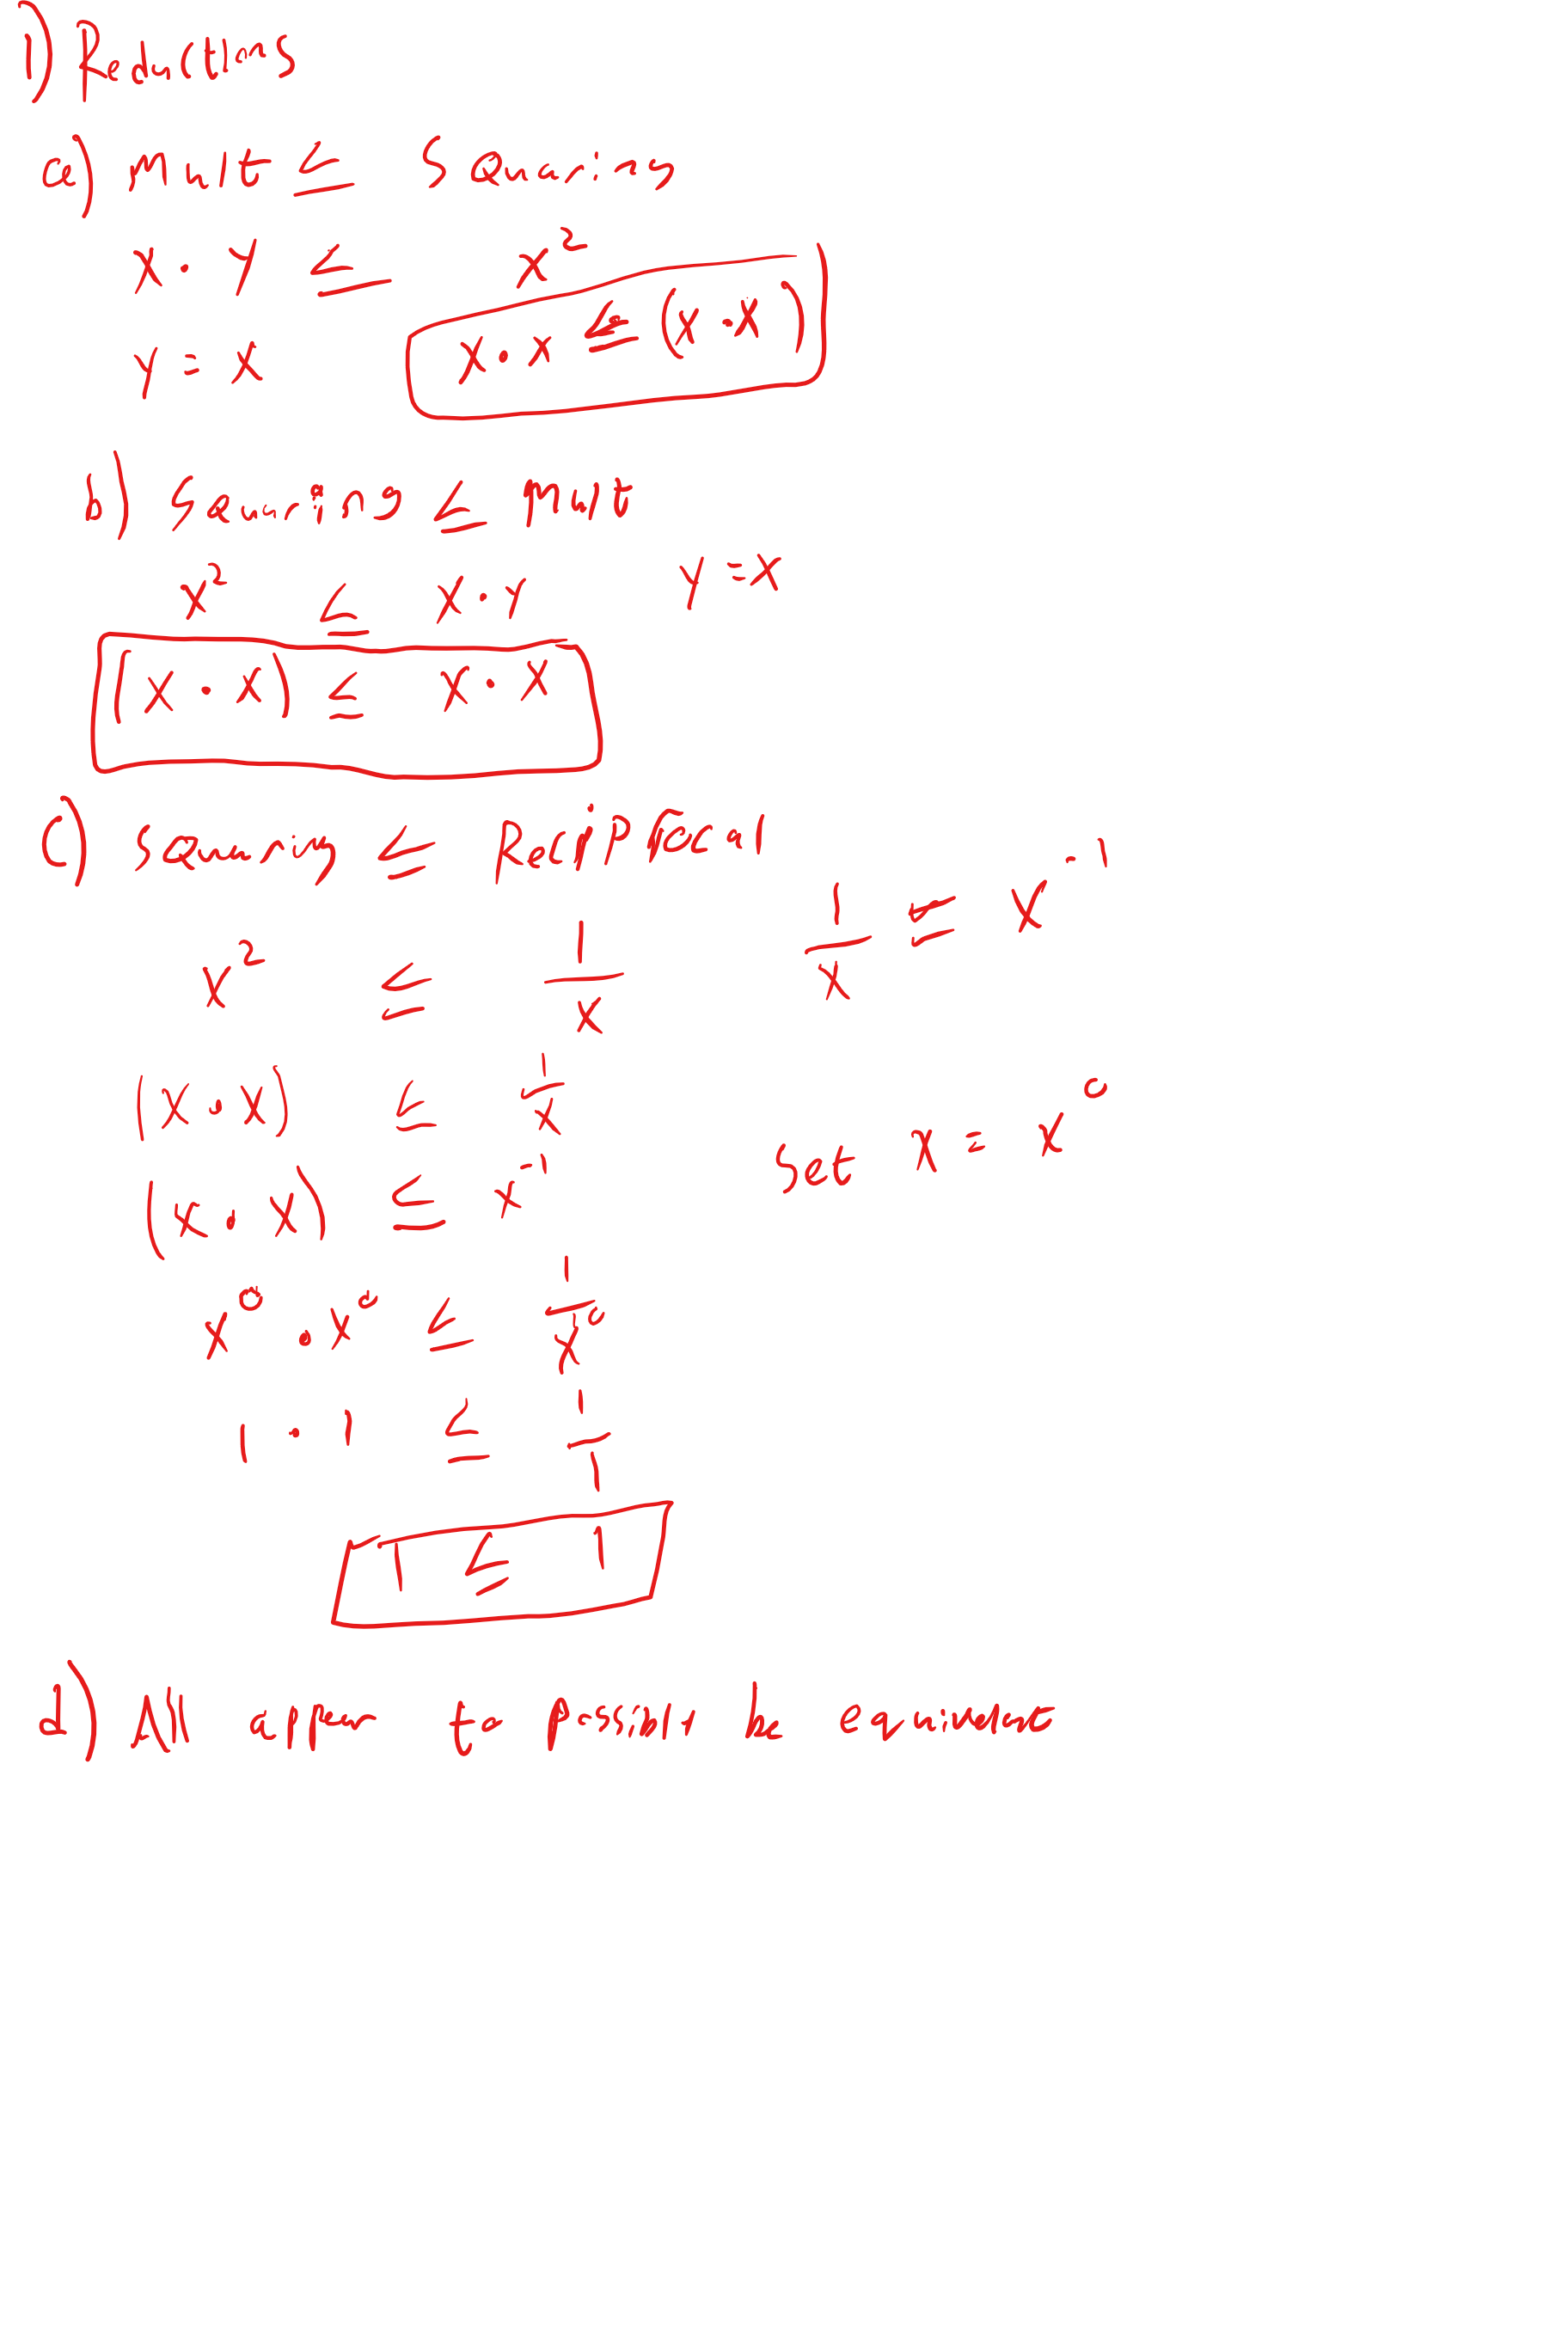 1) Reductions
a) Mult ≤ Squaring
x · y ≤ x²
y = x   x · x ≤ (x · x)
b) Squaring ≤ Mult
x² ≤ x · y   y = x
(x · x) ≤ x · x
c) Squaring ≤ Reciprocal
x² ≤ 1/x   1/x = x⁻¹
(x · x) ≤ 1/x
(x · x) ≤ x⁻¹   Set x = x⁰
x⁰ · x⁰ ≤ 1/x⁰
1 · 1 ≤ 1/1
1 ≤ 1
d) All appear to possibly be equivalent